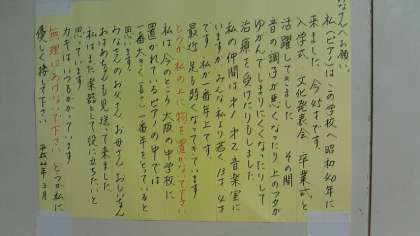 みなさんへお願い。
私(ピアノ)はこの学校へ昭和40年に
来ました。今45才です。
入学式、文化発表会、卒業式と
活躍してきました。その間
音の調子が悪くなったり上のフタが
ゆがんでしまりにくくなったりして
治療を受けたりもしました。
私の仲間はオンガス音楽室に
いますが、みんな私より若く13才、4才
です。私が一番年上です。
最近、足も弱くなってきています
どうか私の上に物を置かないで下さい
私は今のところ大阪の中学校に
置かれているピアノの中では
番大きく古さも一番年をとっていると
思います。
みなさんのお兄さん、お母さん、おじいさん
おばあちゃんも見送って来ました。
私はまだ楽器として役に立ちたいと
思っています。
カギはいつもかかっています。
無理にあけないで下さい。どうか私に
優しく接して下さい。 平成22年3月